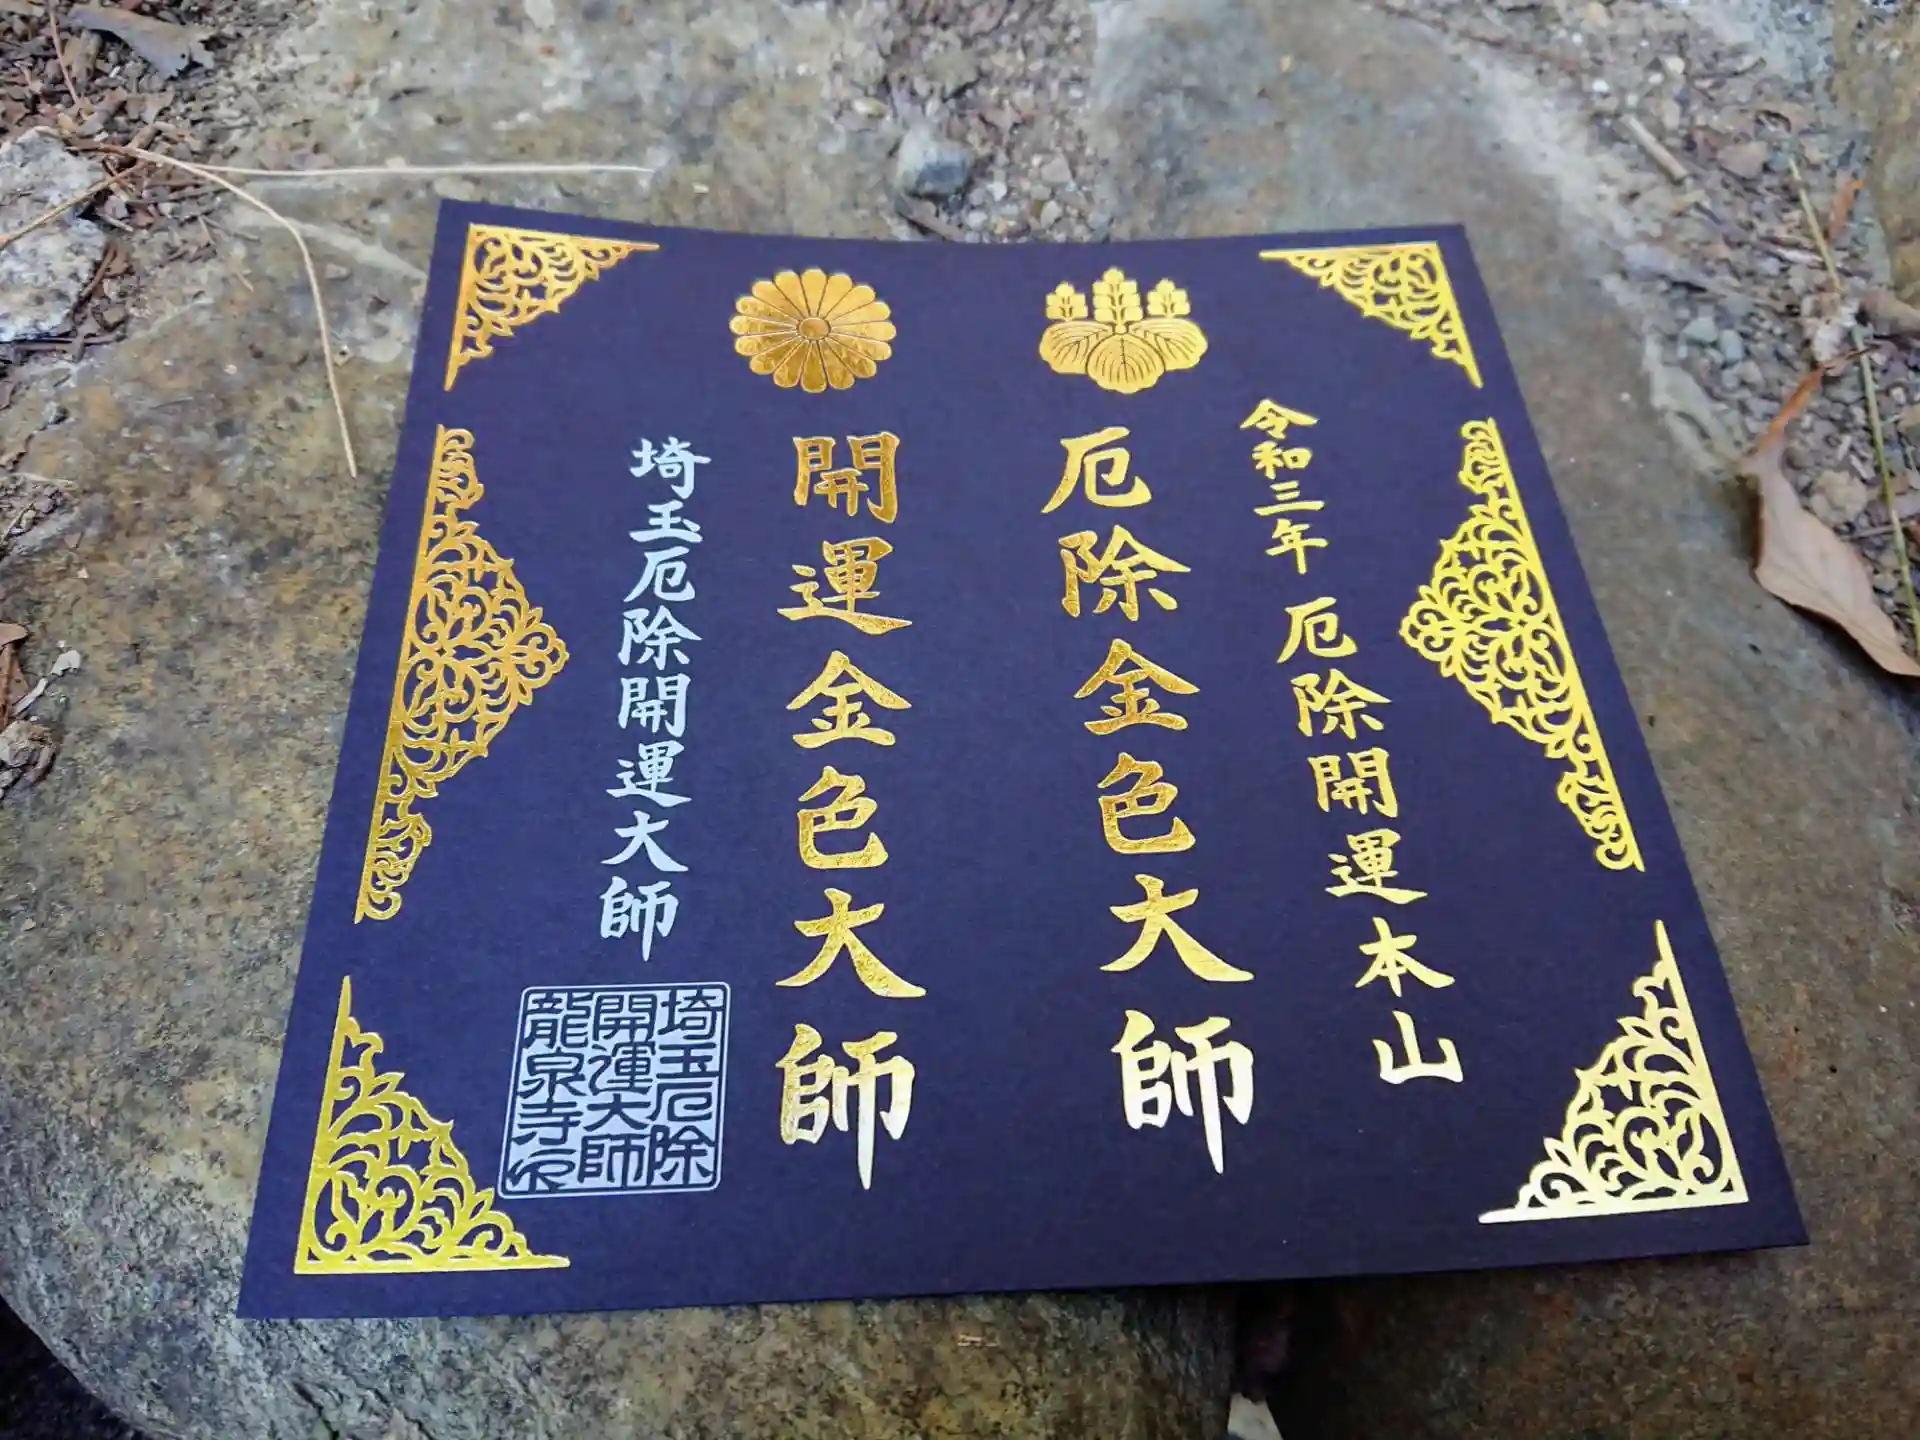 令和三年 厄除開運本山
厄除金色大師
開運金色大師
埼玉厄除開運大師
埼玉厄除
開運大師
龍泉寺印